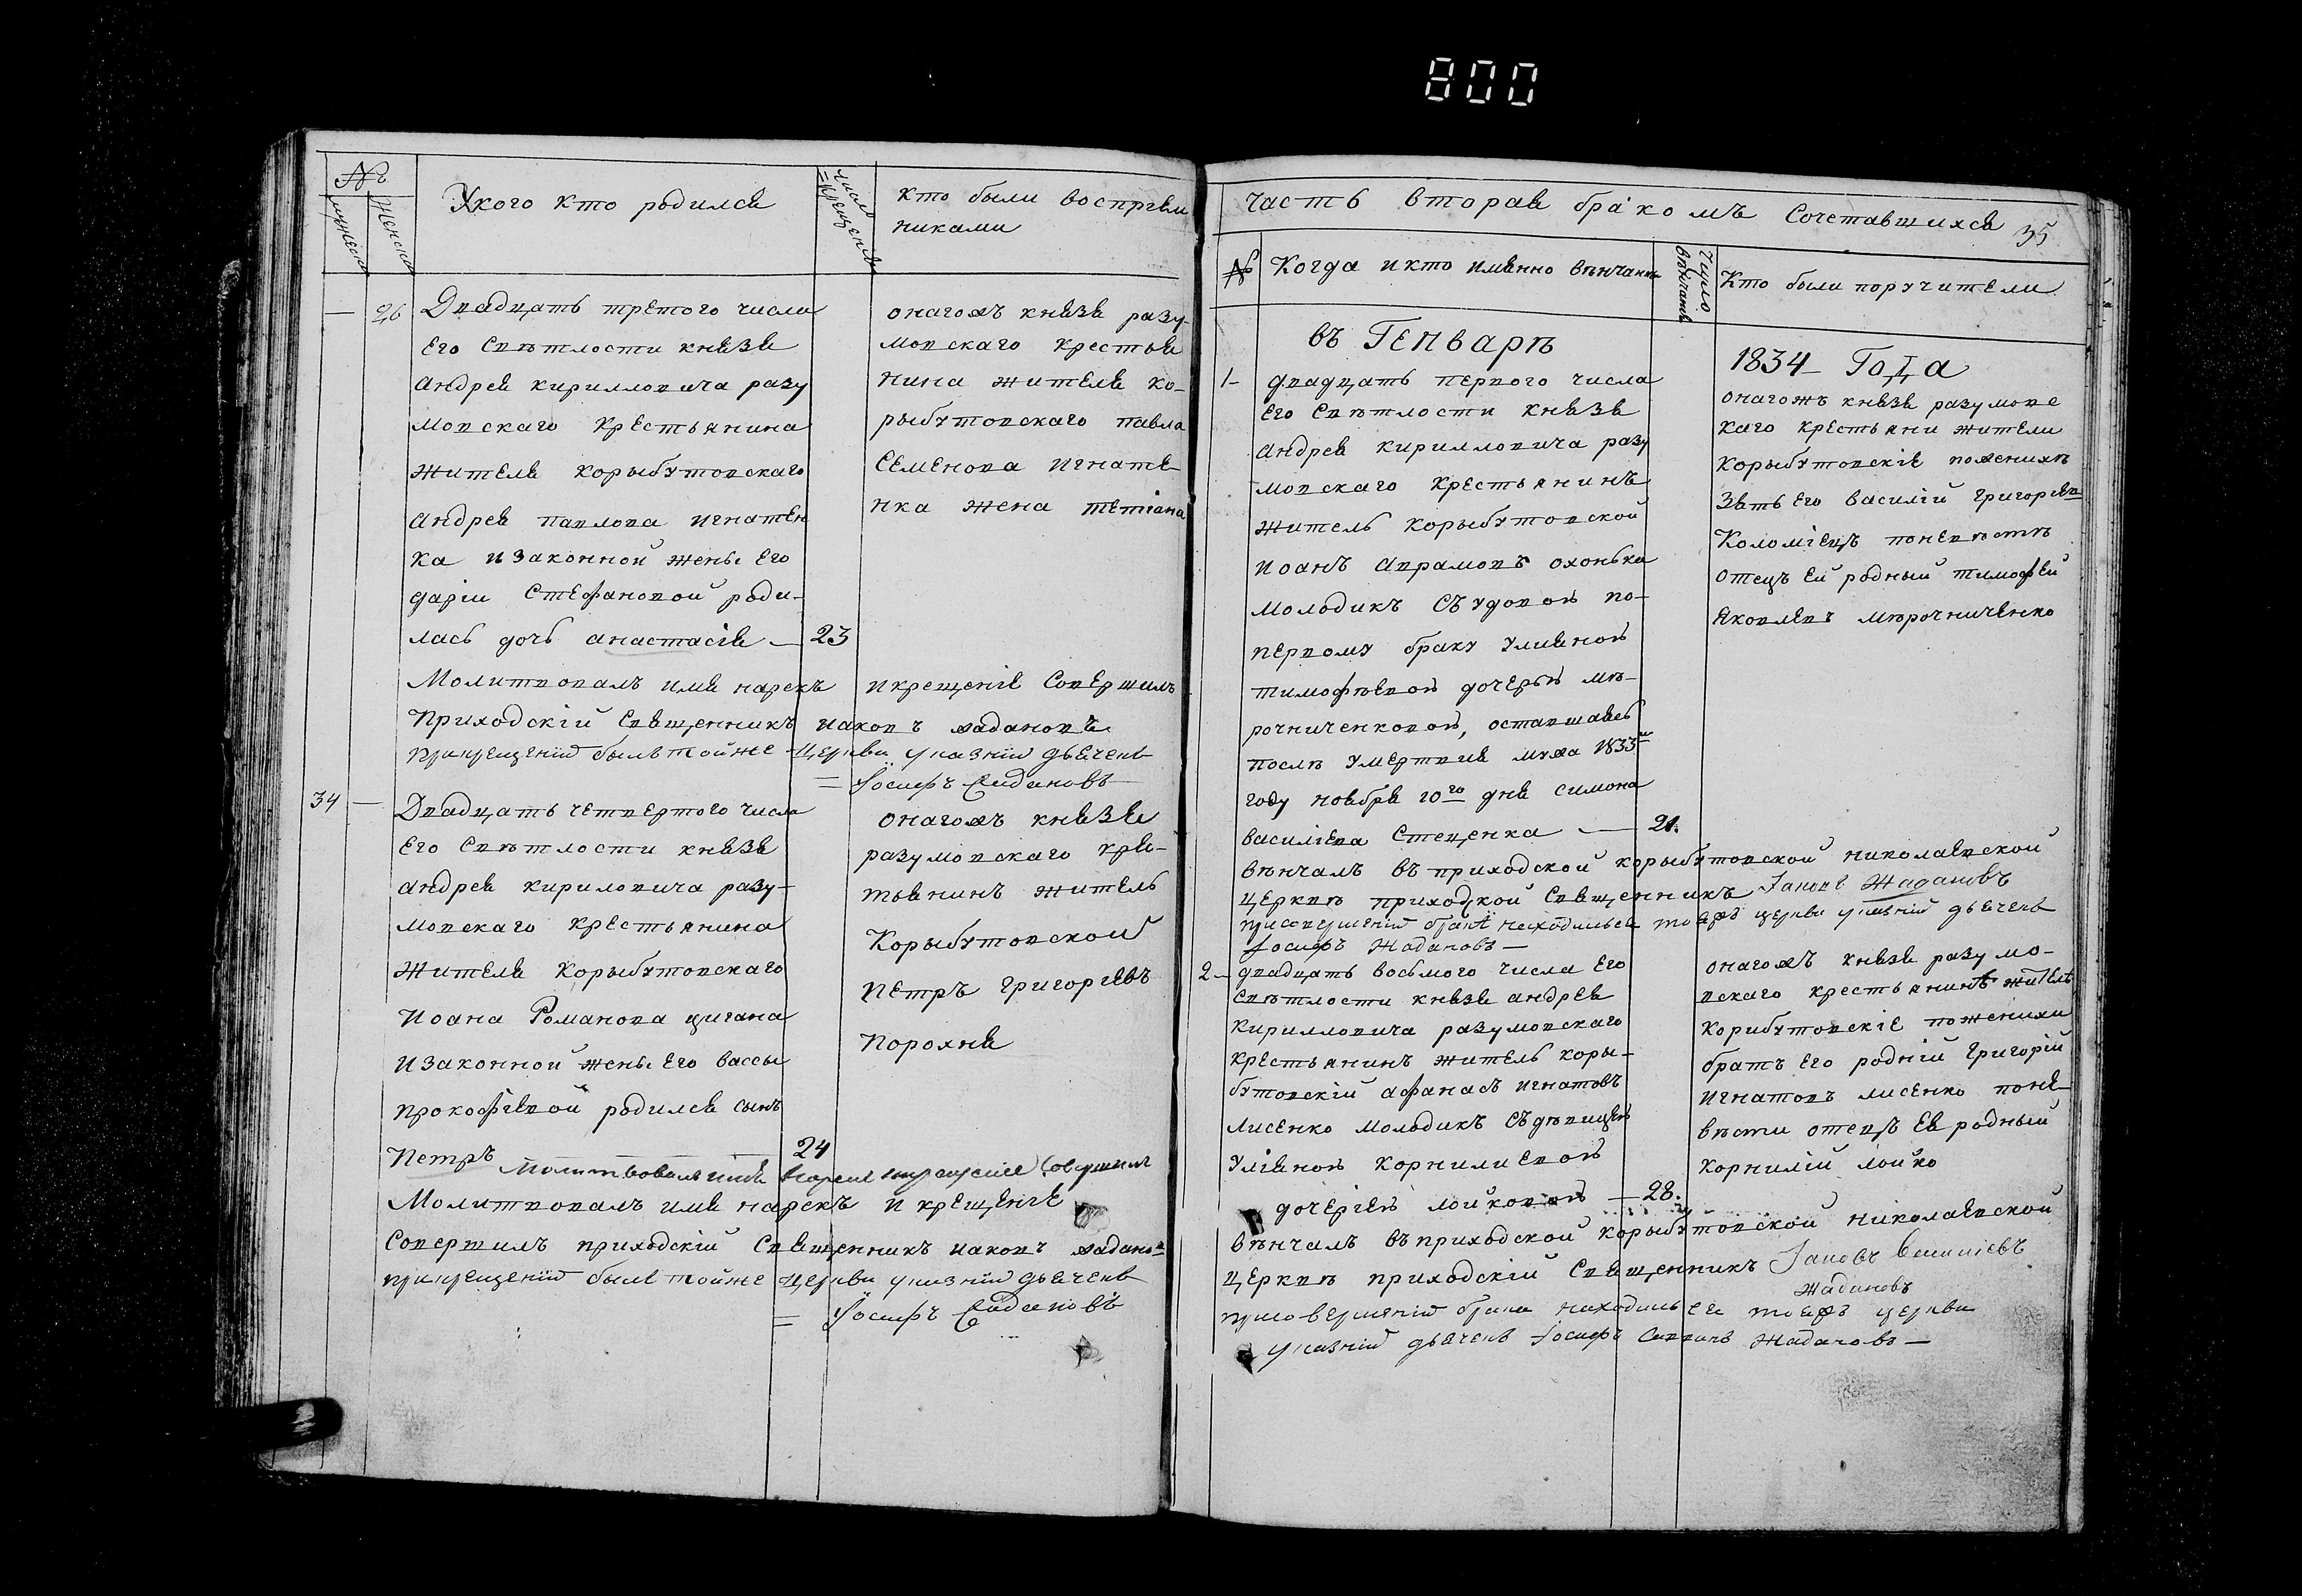 800
№
мужеска
женска
У кого кто родился
число крещенія
кто были воспріем
никами
— 26 Двадцать третого числа
Его Свѣтлости князя
Андрея кирилловича разу
мовскаго крестьянина
жителя корыбутовскаго
Андрея павлова игнатен
ка и законной жены его
дарiи Стефановой роди-
лась дочь анастасія — 23
онагожъ князя разу-
мовскаго крестья
нина жителя ко-
рыбутовскаго павла
Семенова игнате-
нка жена тетіана
Молитвовалъ имя нарекъ и крещеніе Совершилъ
Приходскій Священникъ иаковъ жадановъ
при крещеніи былъ тойже церкви указній дьячекъ
= Іосифъ Жадановъ
34 — Двадцать четвертого числа
Его Свѣтлости князя
андрея кириловича разу-
мовскаго крестьянина
жителя корыбутовскаго
Иоана Романова цигана
и законной жены его вассы
прокофіевой родился сынъ
Петръ 24
онагожъ князя
разумовскаго кре-
тьянинъ житель
Корыбутовской
Петръ григоріевъ
порохня
Молитвовалъ имя нарекъ и крещеніе Совершилъ
Молитвовалъ имя нарекъ и крещеніе
Совершилъ приходскій Священникъ иаковъ жаданов
при крещеніи былъ тойже церкви указній дьячекъ
= Іосифъ Жадановъ
часть вторая бракомъ Сочетавшихся 35
№
Когда и кто имянно вѣнчанъ
число вѣнчанія
Кто были поручители
въ Генварѣ
1834 Года
1- двадцать первого числа
Его Свѣтлости князя
андрея кирилловича разу
мовскаго крестьянинъ
житель корыбутовской
иоанъ аврамовъ охонька
молодикъ Съ удовою по-
первому браку улияною
тимофѣевою дочерью мѣ-
рочниченковою, оставшаясь
послѣ умертвия мужа 1833
году ноября 10го дня симона
василіева Стеценка — 21.
онагожъ князя разумовс
каго крестьяни жители
корыбутовскіе поженихѣ
зять его василій григоріев
Коломіецъ поневѣстѣ
отецъ ей родный тимофей
яковлевъ мѣрочниченко
вѣнчалъ въ приходской корыбутовской николаевской
церквѣ приходкой Священникъ Іаковъ Жадановъ
при совершеніи брака находился тоежъ церкви указній дьячекъ
Іосифъ Жадановъ —
2- двадцать восьмого числа Его
Свѣтлости князя андрея
кирилловича разумовскаго
крестьянинъ житель коры-
бутовскій афанасъ игнатовъ
лисенко молодикъ Съ дѣвицею
уліяною корнилиевою
дочеріею лойковою — 28.
онагожъ князя разумо-
вскаго крестьянинъ житель
корибутовскіе поженихи
братъ его родній григорій
игнатовъ лисенко поне-
вѣсти отецъ ея родный
корнилій лойко
вѣнчалъ въ приходской корыбутовской николаевской
церквѣ приходскій Священникъ Іаковъ Василіевъ
Жадановъ
при совершеніи брака находился тоежъ церкви
указній дьячекъ Іосифъ Жадановъ —